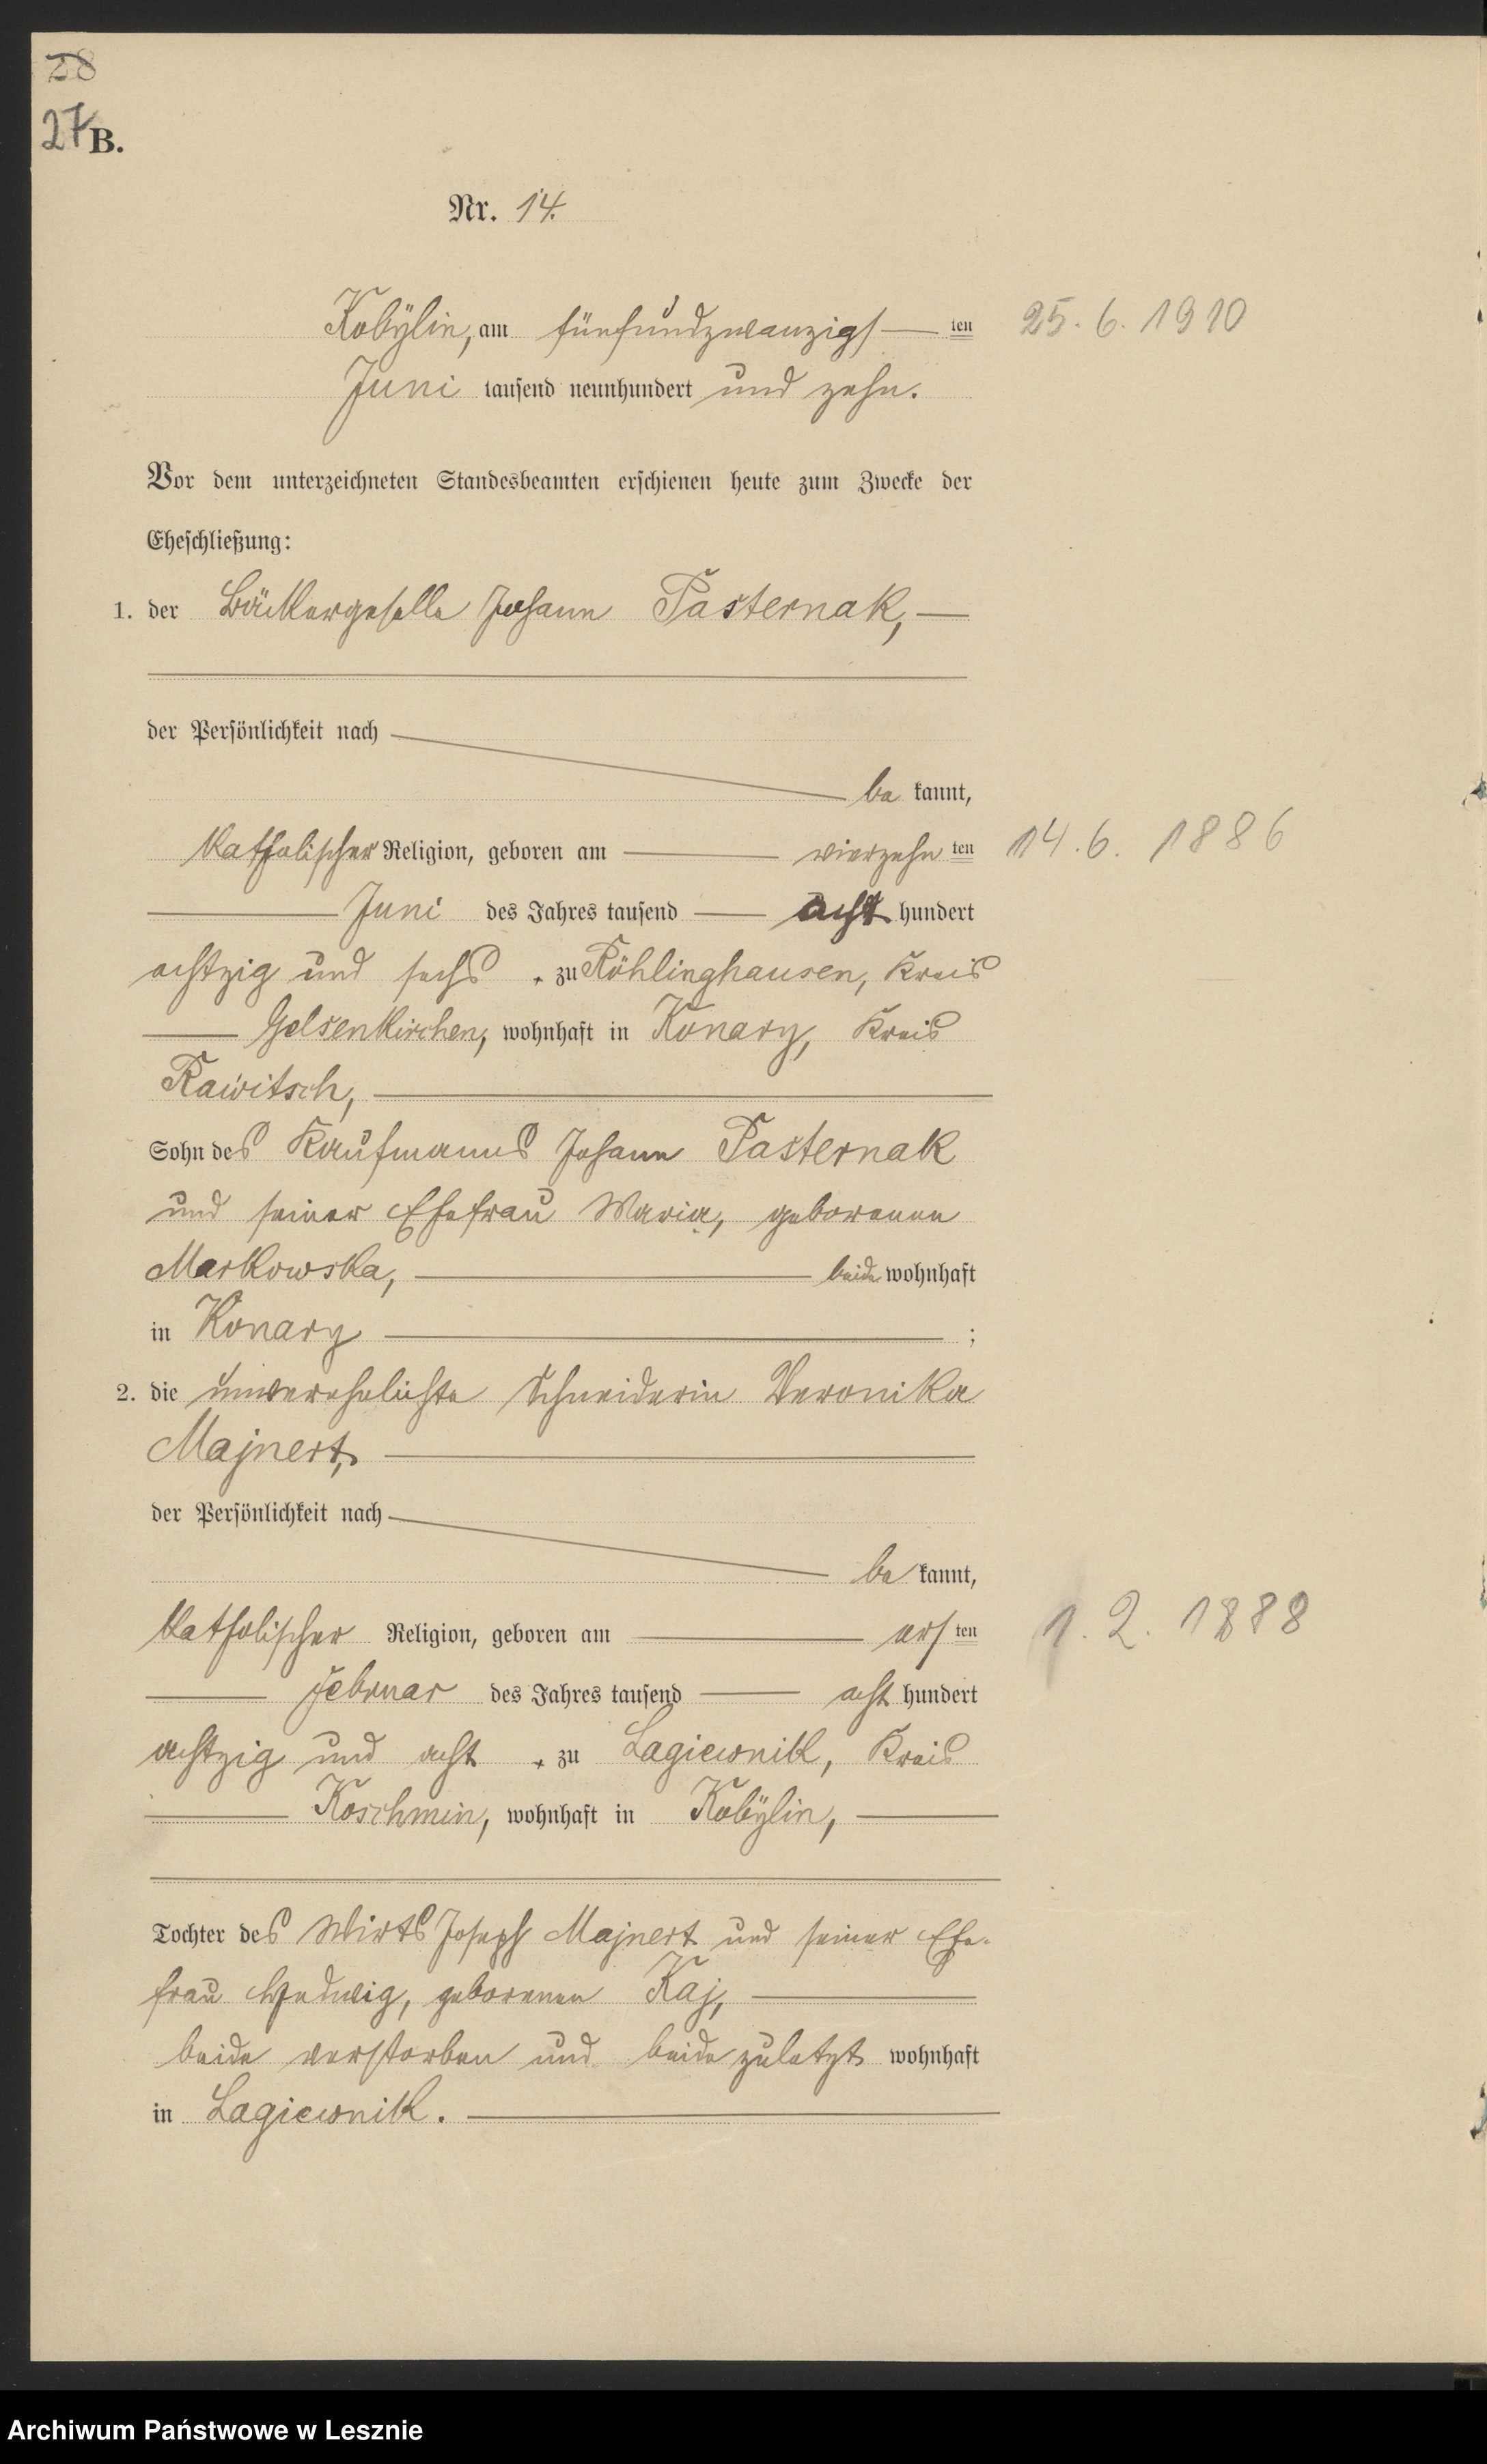 28
27 B.
Nr. 14.
Kobylin, am fünfundzwanzigs ten 25.6.1910
Juni tausend neunhundert und zehn.
Vor dem unterzeichneten Standesbeamten erschienen heute zum Zwecke der
Eheschließung:
1. der Bäckergeselle Johann Pasternak,
der Persönlichkeit nach
be kannt,
katholischer Religion, geboren am vierzehn ten 14.6.1886
Juni des Jahres tausend acht hundert
achtzig und sechs , zu Röhlinghausen, Kreis
Gelsenkirchen, wohnhaft in Konary, Kreis
Rawitsch,
Sohn des Kaufmanns Johann Pasternak
und seiner Ehefrau Maria, geborenen
Markowska, beide wohnhaft
in Konary ;
2. die unverehelichte Schneiderin Veronika
Majnert,
der Persönlichkeit nach
be kannt,
katholischer Religion, geboren am ers ten 1.2.1888
Februar des Jahres tausend acht hundert
achtzig und acht , zu Lagiewnik, Kreis
Koschmin, wohnhaft in Kobylin,
Tochter des Wirts Joseph Majnert und seiner Ehe-
frau Hedwig, geborenen Kaj,
beide verstorben und beide zuletzt wohnhaft
in Lagiewnik.
Archiwum Państwowe w Lesznie